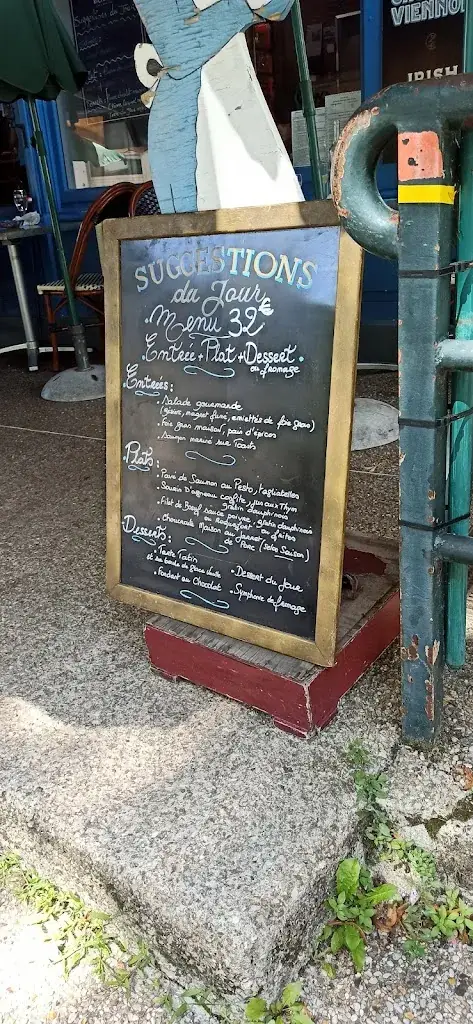 VIENNOI
IRISH
SUGGESTIONS
du Jour
• Menu 32€
• Entrée + Plat + Dessert •
ou fromage
Entrées :
• Salade gourmande
(gésier, magret fumé, emiettés de foie gras)
• Foie gras maison, pain d'épices
• Saumon mariné sur Toasts
Plats :
• Pavé de Saumon au Pesto, tagliatelles
• Souris D'agneau confite, jus aux Thym
gratin dauphinois
• Filet de Boeuf sauce poivre, gratin dauphinois
ou Roquefort ou frites
• Choucroute Maison au Jarret
de Porc (selon Saison)
Desserts :
• Tarte Tatin
et sa boule de glace vanille
• Fondant au Chocolat
• Dessert du Jour
• Symphonie de fromage